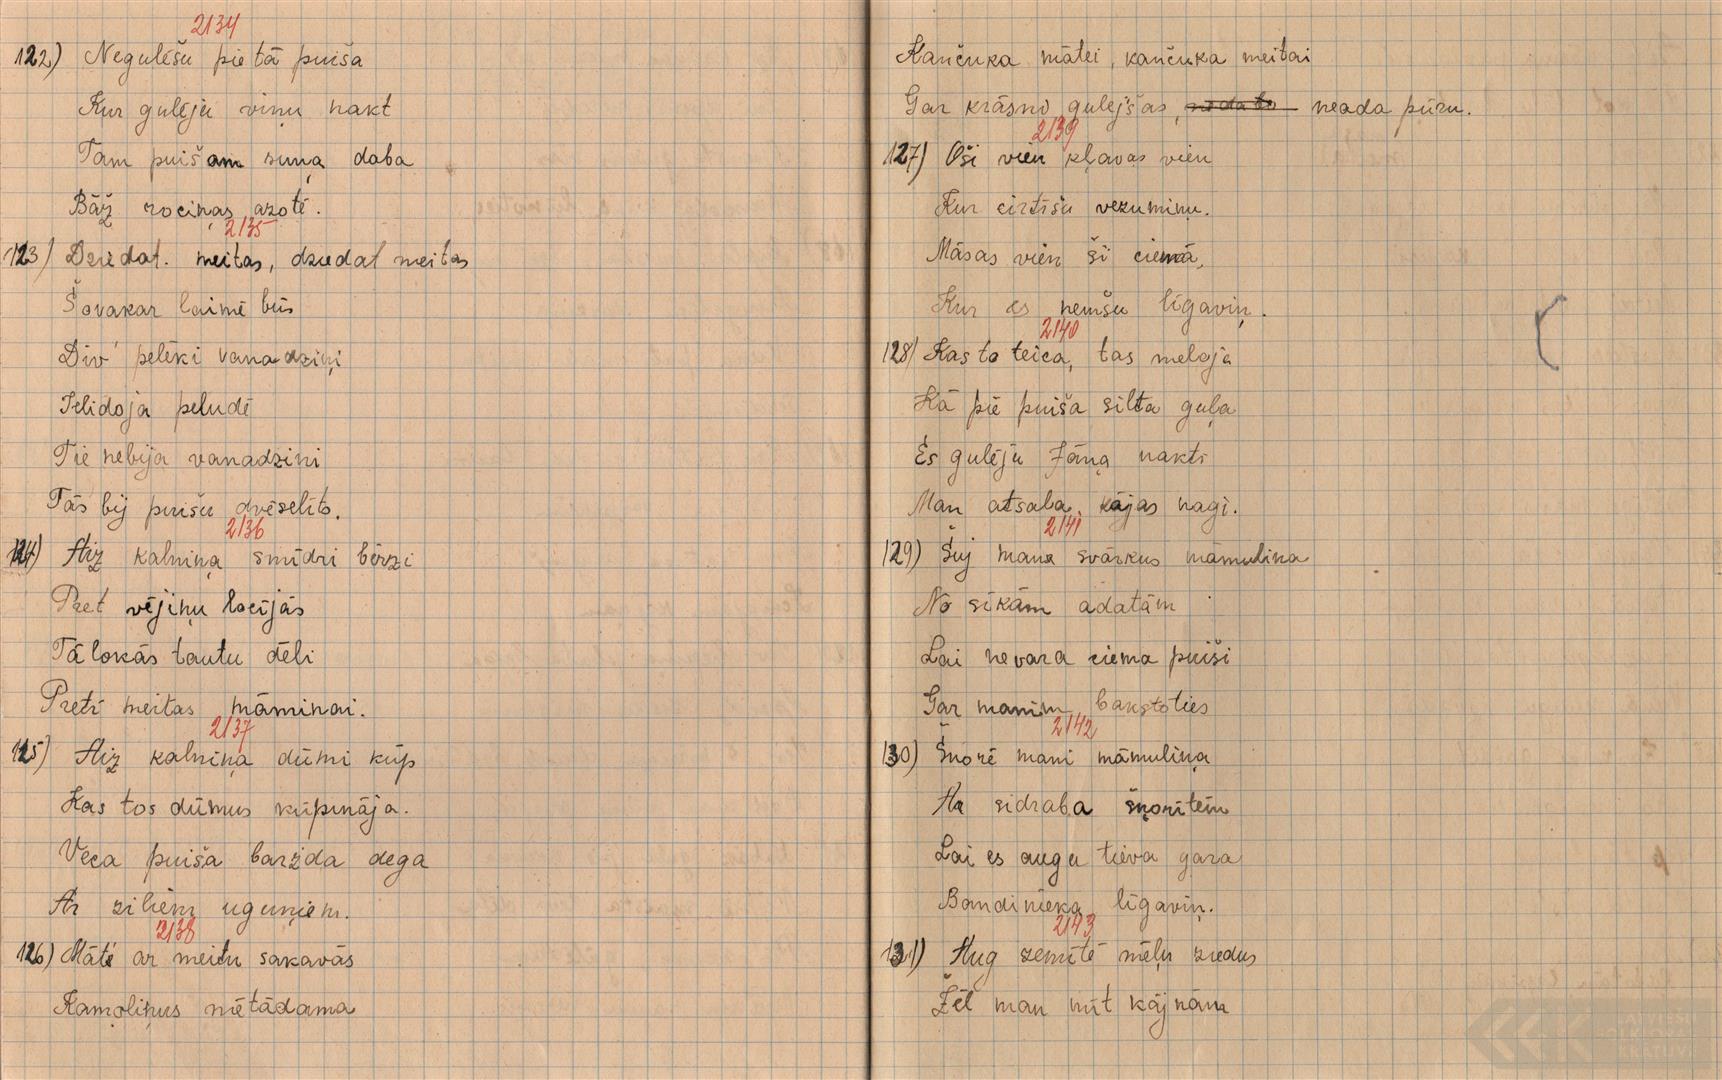 2134
122) Negulēšu pie tā puiša
Kur gulēju viņu nakt
Tam puišam suņa daba
Bāž rociņas azotē.
2135
123) Dziedat. meitas, dziedat meitas
Šovakar laimē būs
Div' pelēki vanadziņi
Ielidoja peludē
Tie nebija vanadzini
Tās bij puišu dvēselīts.
2136
124) Aiz kalniņa smīdri bērzi
Pret vējiņu locījās
Tā lokās tautu dēli
Pretī meitas māminai.
2137
125) Aiz kalniņa dūmi kūp
Kas tos dūmus kūpināja.
Veca puiša baržda dega
Ar ziliem uguņiem.
2138
126) Māte ar meitu sakavās
Kamoliņus mētādama
Kančuka mātei, kančuka meitai
Gar krāsno gulejšas, neada pūru.
2139
127) Oši vien kļavas vien
Kur cirtīšu vezumiņu.
Māsas vien šī ciemā,
Kur es nemšu līgaviņ.
2140
128) Kas to teica, tas meloja
Kā pie puiša silta guļa
Es gulēju Jāņa nakti
Man atsala kājas nagi.
2141
129) Šuj mana svārkus māmulina
No sīkām adatām
Lai nevara ciema puiši
Gar manim bakstoties
2142
130) Šnorē mani māmuliņa
Ar sidraba šņorītēm
Lai es augu tieva gara
Bandinieka līgaviņ.
2143
131) Aug zemītē mēļu ziedus
Žēl man mīt kājnām